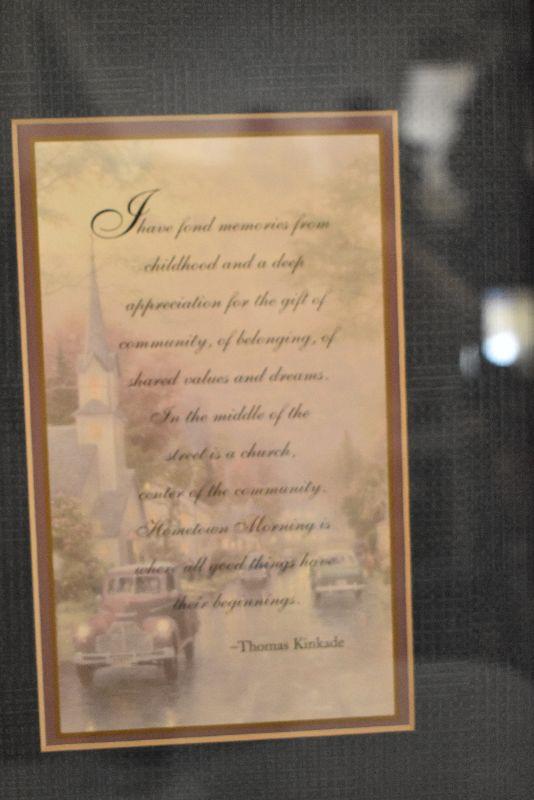 I have fond memories from
childhood and a deep
appreciation for the gift of
community, of belonging, of
shared values and dreams.
In the middle of the
street is a church,
center of the community.
Hometown Morning is
where all good things have
their beginnings.
–Thomas Kinkade